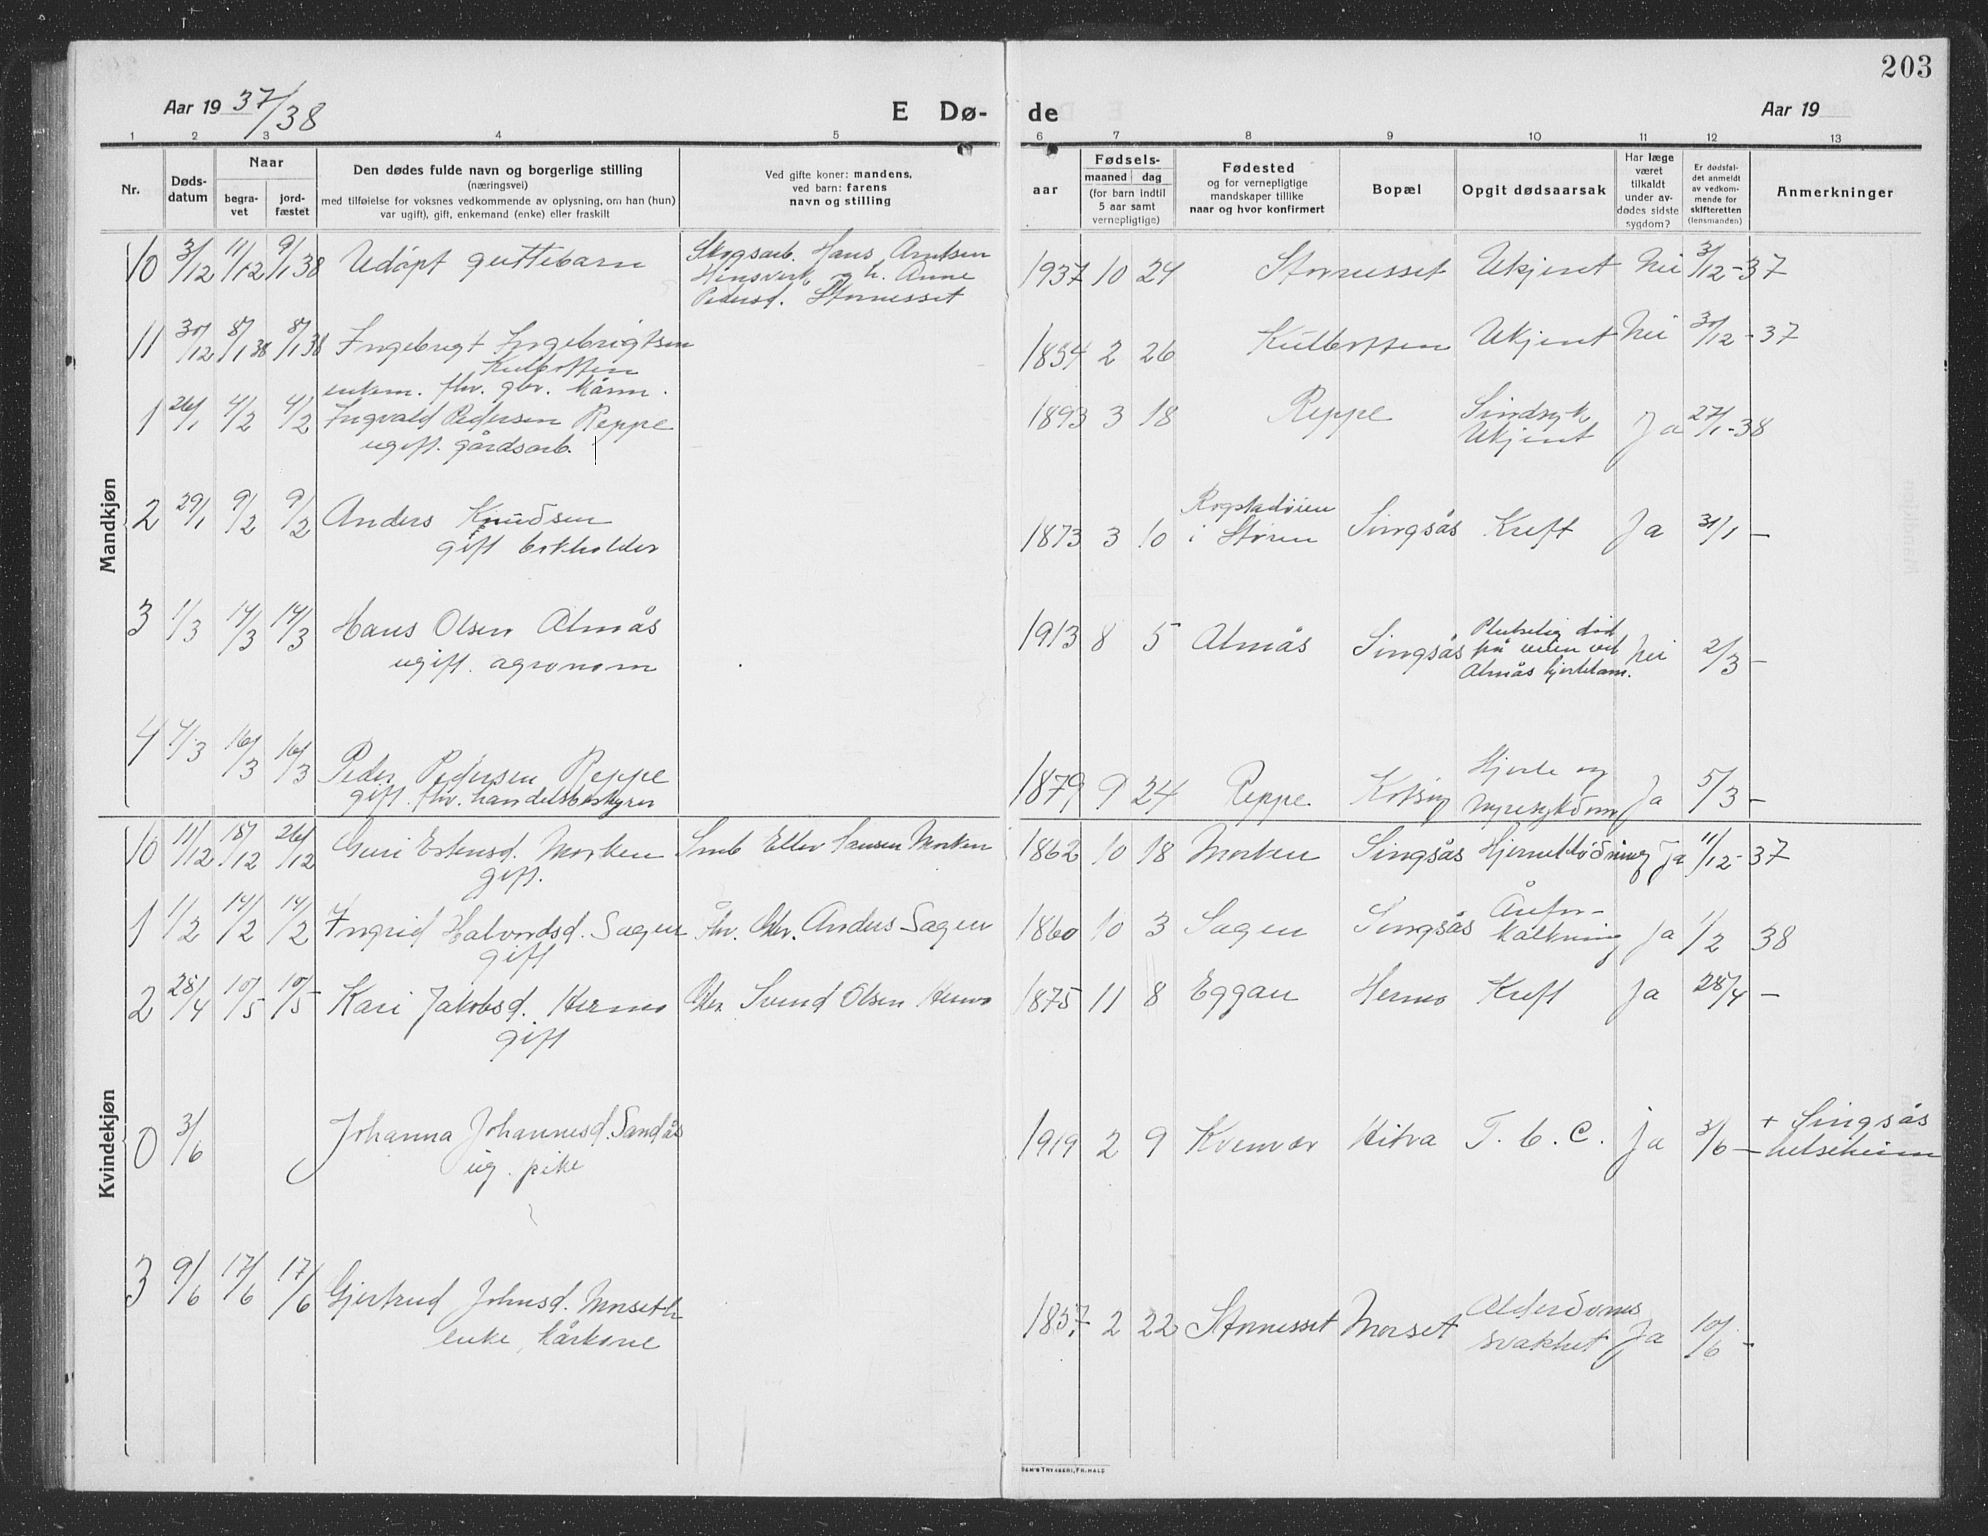 203
Aar 19 37/38
E Dø-
de
Aar 19
1 2 3 4 5 6 7 8 9 10 11 12 13
Nr.
Døds-
datum
Naar
begra-
vet
jord-
fæstet
Den dødes fulde navn og borgerlige stilling
(næringsvei)
med tilføielse for voksnes vedkommende av oplysning, om han (hun)
var ugift), gift, enkemand (enke) eller fraskilt
Ved gifte koner: mandens,
ved barn: farens
navn og stilling
aar
Fødsels-
maaned dag
(for barn indtil
5 aar samt
vernepligtige)
Fødested
og for vernepligtige
mandskaper tillike
naar og hvor konfirmert
Bopæl
Opgit dødsaarsak
Har læge
været
tilkaldt
under av-
dødes sidste
sygdom?
Er dødsfal-
det anmeldt
av vedkom-
mende for
skifteretten
(lensmanden)
Anmerkninger
Mandkjøn
10 3/12 11/12 9/1 38 Udøpt guttebarn
Skogsarb. Hans Arntsen
Hinsverk og h. Anne
Pedersd. Størnesset
1937 10 24 Størnesset Ukjent Nei 3/12-37
11 30/12 8/1 38 8/1 38 Ingebrigt Ingebrigtsen
Kulbotten
enkem. fhv. gbr. kårm.
1834 2 26 Kulbotten Ukjent Nei 30/12-37
1 26/1 4/2 4/2 Ingvald Pedersen Reppe
ugift. gårdsarb.
1893 3 18 Reppe Sindsyk
Ukjent Ja 27/1-38
2 29/1 9/2 9/2 Anders Knudsen
gift bokholder
1873 3 10 Rogstadøien
i Støren Singsås Kreft Ja 31/1 –
3 1/3 14/3 14/3 Hans Olsen Almås
ugift. agronom
1913 8 5 Almås Singsås Plutselig død
på veien ved
Almås hjertelam. Nei 2/3 –
4 4/3 16/3 16/3 Peder Pedersen Reppe
gift. fhv. handelsbestyrer
1879 9 24 Reppe Kotsøy Hjerte og
nyresykdom Ja 5/3 –
Kvindekjøn
10 11/12 18/12 26/12 Guri Estensd. Morken
gift.
Smb Ellev Hansen Morken
1862 10 18 Morken Singsås Hjerneblødning Ja 11/12-37
1 1/2 14/2 14/2 Ingrid Halvordsd. Sagen
gift
Fhv. Gbr. Anders Sagen
1860 10 3 Sagen Singsås Årefor-
kalkning Ja 1/2 38
2 28/4 10/5 10/5 Kari Jakobsd. Hermo
gift
Gbr. Svend Olsen Hermo
1875 11 8 Eggan Hermo Kreft Ja 28/4 –
0 3/6 Johanna Johannesd. Sandås
ug. pike
1919 2 9 Kvenvær Hitra T.b.C. ja 3/6 – + Singsås
helseheim
3 9/6 17/6 17/6 Gjertrud Johnsd. Morseth
enke, kårkone
1857 2 22 Størnesset Morset Alderdoms
svakhet Ja 10/6 –